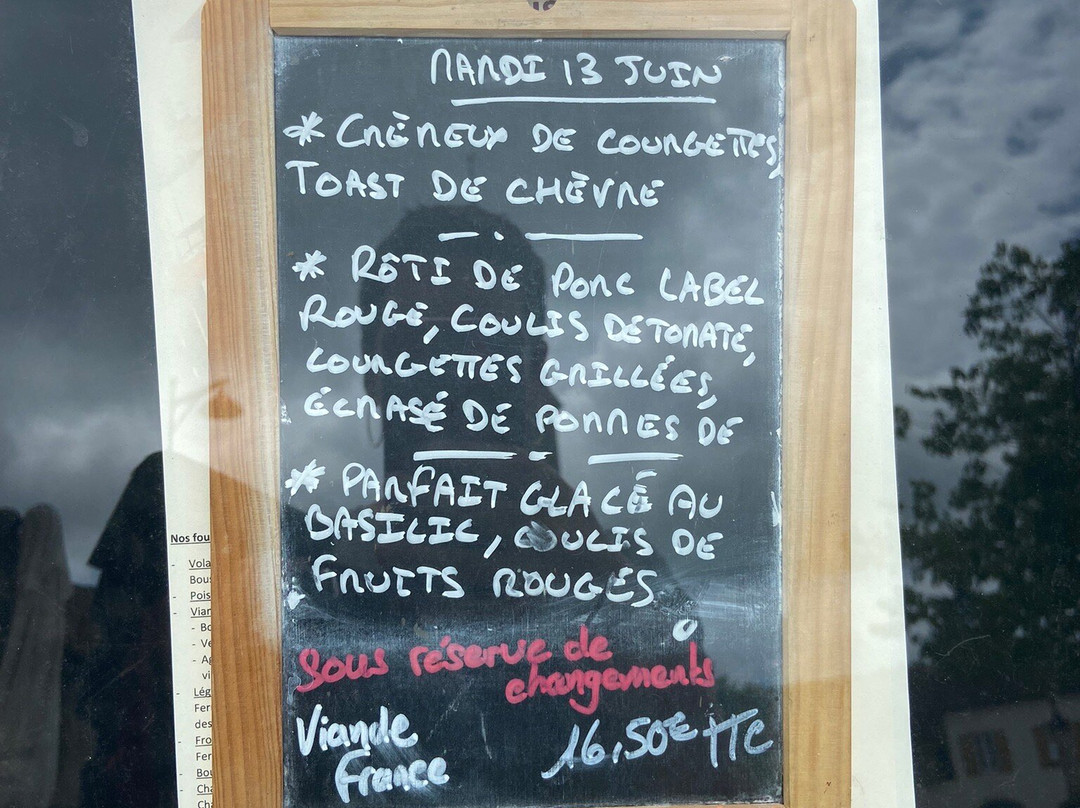 MARDI 13 JUIN
* CRÈMEUX DE COURGETTES,
TOAST DE CHÈVRE
* RÔTI DE PORC LABEL
ROUGE, COULIS DE TOMATE,
COURGETTES GRILLÉES,
ÉCRASÉ DE POMMES DE
* PARFAIT GLACÉ AU
BASILIC, COULIS DE
FRUITS ROUGES
Sous réserve de
changements
Viande
France
16,50€ TTC
Nos fou
- Vola
Bou
- Pois
- Vian
- Bo
- Ve
- Ag
vi
- Lég
Fer
des
- Fro
Fer
- Bou
- Cha
Ch